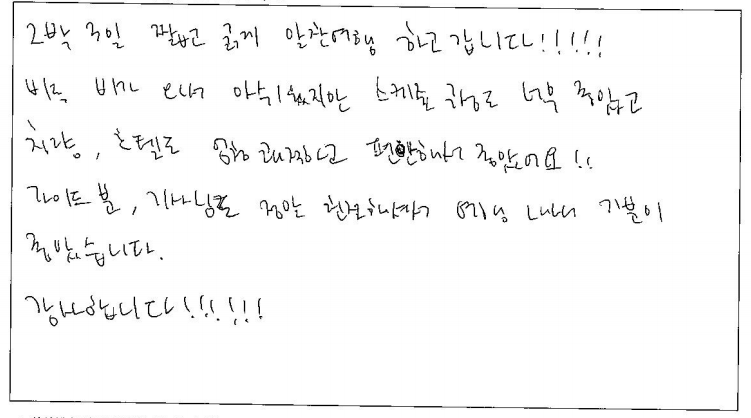 2박 3일 짧고 굵게 알찬여행 하고 갑니다!!!!!
비록 비가 와서 아쉬웠지만 스케줄 구성도 너무 좋았고
차량, 호텔도 엄청 괜찮고 편안해서 좋았어요!!
가이드 분, 기사님도 정말 친절하셔서 여행 내내 기분이
좋았습니다.
감사합니다!!!!!!